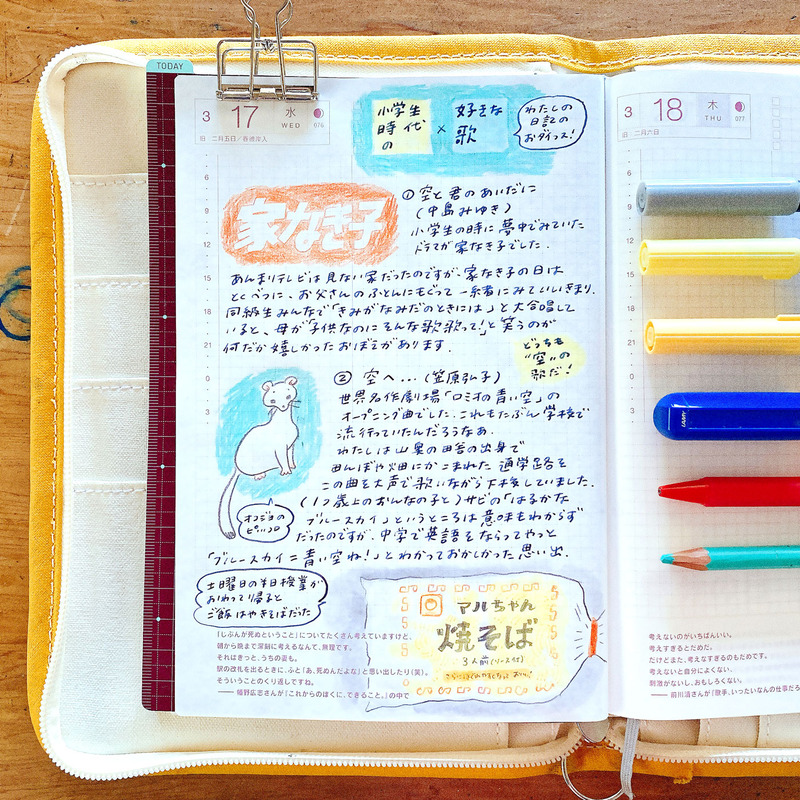 TODAY
3 17 水 WED 076
旧 二月五日／春彼岸入
小学生
時代
の
×
好きな
歌
わたしの
日記の
お夕イコス!
家なき子
① 空と君のあいだに
(中島みゆき)
小学生の時に夢中でみていた
ドラマが家なき子でした.
あんまりテレビは見ない家だったのですが、家なき子の日は
とくべつに、お父さんのふとんにもぐって一緒にみていいきまり.
同級生みんなで「きみがなみだのときには」と大合唱して
いると、母が「子供なのにそんな歌歌って!」と笑うのが
何だか嬉しかったおぼえがあります.
どっちも
"空"の
歌だ!
② 空へ…(笠原弘子)
世界名作劇場「ロミオの青い空」の
オープニング曲でした.これもたぶん学校で
流行っていたんだろうなあ.
わたしは山奥の田舎の出身で
田んぼや畑にかこまれた通学路を
この曲を大声で歌いながら下校していました.
(1つ歳上のおんなの子と)サビの「はるかな
ブルースカイ」というところは意味もわからず
だったのですが、中学で英語をならってやっと
「ブルースカイ=青い空ね!」とわかっておかしかった思い出.
オコジョの
ピッコロ
土曜日の半日授業が
おわって帰ると
ご飯はやきそばだった
マルちゃん
焼そば
3人前(ソース付)
「じぶんが死ぬということ」についてたくさん考えていますけど、
朝から晩まで深刻に考えるなんて、無理です。
それはきっと、うちの妻も。
駅の改札を出るときに、ふと「あ、死ぬんだよな」と思い出したり(笑)。
そういうことのくり返しですね。
—— 幡野広志さんが『これからのぼくに、できること。』の中で
3 18 木 THU 077
旧 二月六日
6
9
12
15
18
21
0
3
6
9
12
15
18
21
0
3
LAMY
考えないのがいちばんいい。
考えすぎるとだめだ。
だけどまた、考えすぎるのもだめです。
考えないと自分によくない。
刺激がないし、おもしろくない。
—— 前川清さんが『歌手、いったいなんの仕事だろ